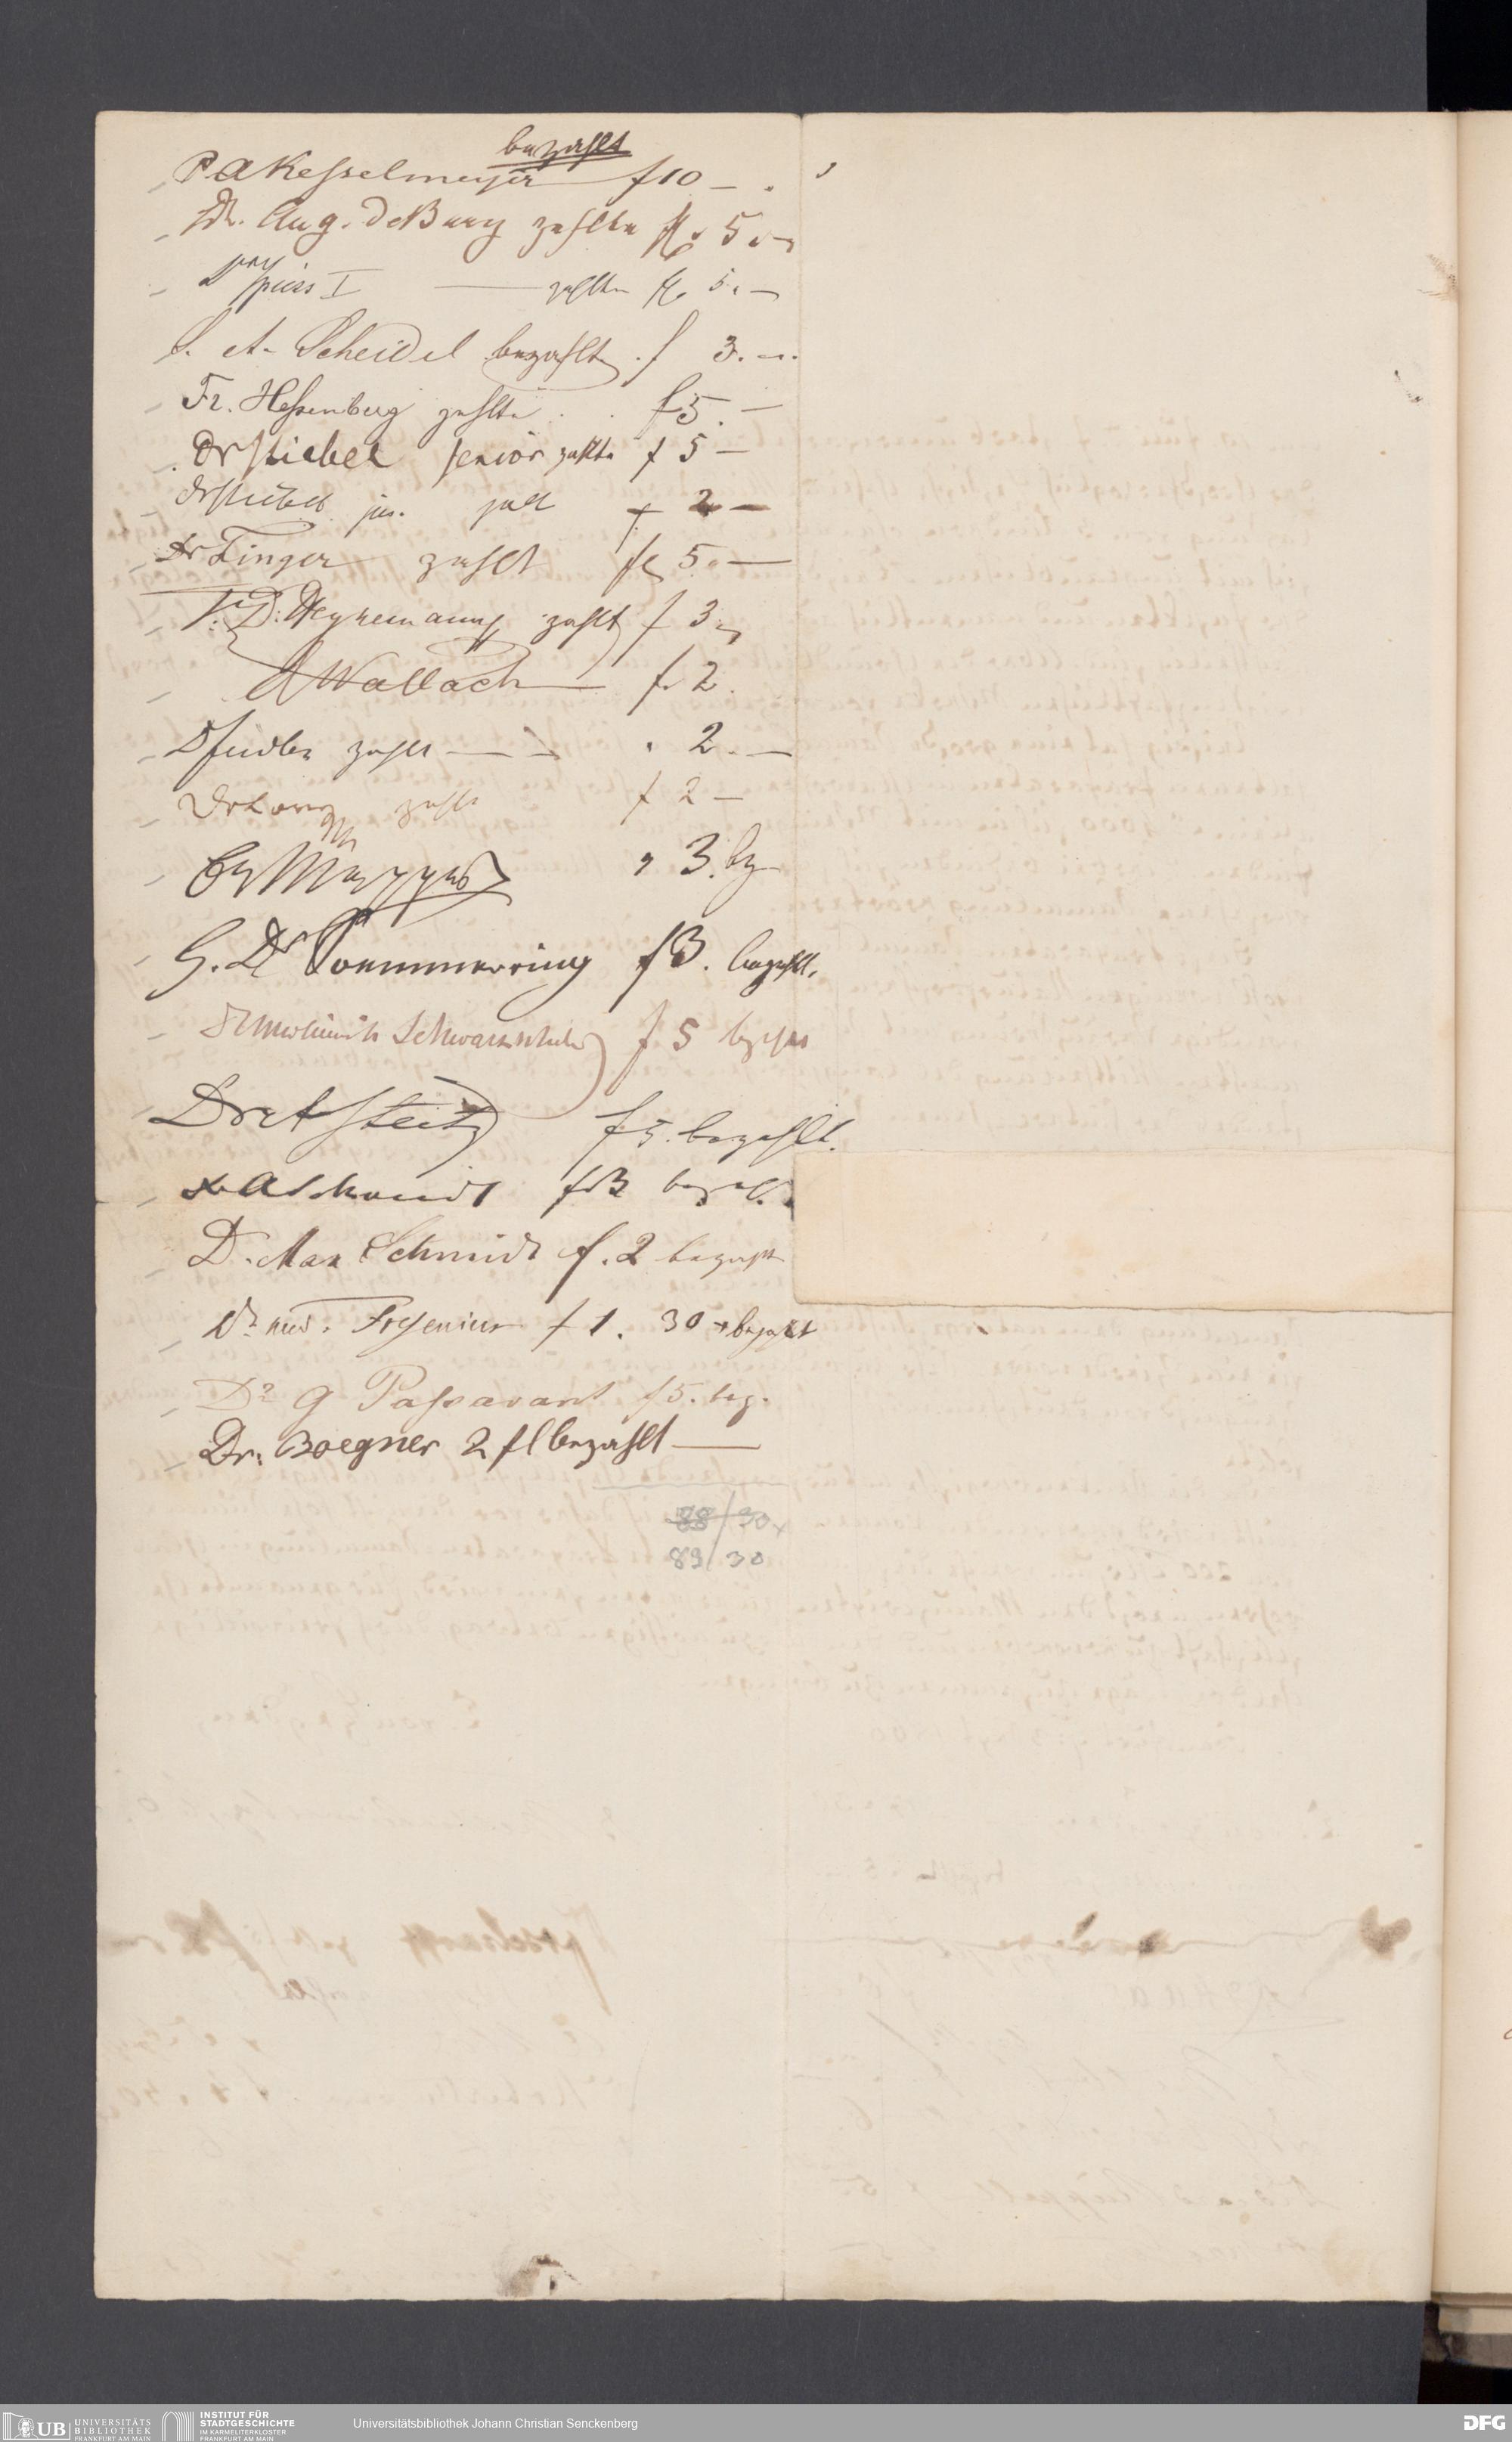 bezahlt
P. A. Kesselmeyer f 10 –
Dr. Aug. de Bary zahlte fl. 5. –
Dr Spiess I — zahlte fl. 5. –
S. A. Scheidel bezahlte f 3. –
Fr. Hessenberg zahlte f 5. –
Dr Stiebel senior zahlte f 5 –
Dr Stiebel jun. zalt f 2 –
Dr Finger zahlt fl 5. –
D. Heynemann zahlt f 3.
Wallach f. 2.
zahlt — 2. –
Dr Lorey zahlt f 2 –
" 3. bz
G. Dr Soemmerring f 3. bezahlt.
f 5 bezahlt
Dr A Steitz f 5. bezahlt.
Dr A Schmidt f 3 bezahlt.
D. Max Schmidt f. 2 bezahlt
Dr. med. Fresenius f 1. 30 x bezahlt
Dr G Passavant f 5. bez.
Dr. Boegner 2 fl bezahlt —
88/30x
89/30
UB UNIVERSITÄTS
BIBLIOTHEK
FRANKFURT AM MAIN
INSTITUT FÜR
STADTGESCHICHTE
IM KARMELITERKLOSTER
FRANKFURT AM MAIN
Universitätsbibliothek Johann Christian Senckenberg
DFG